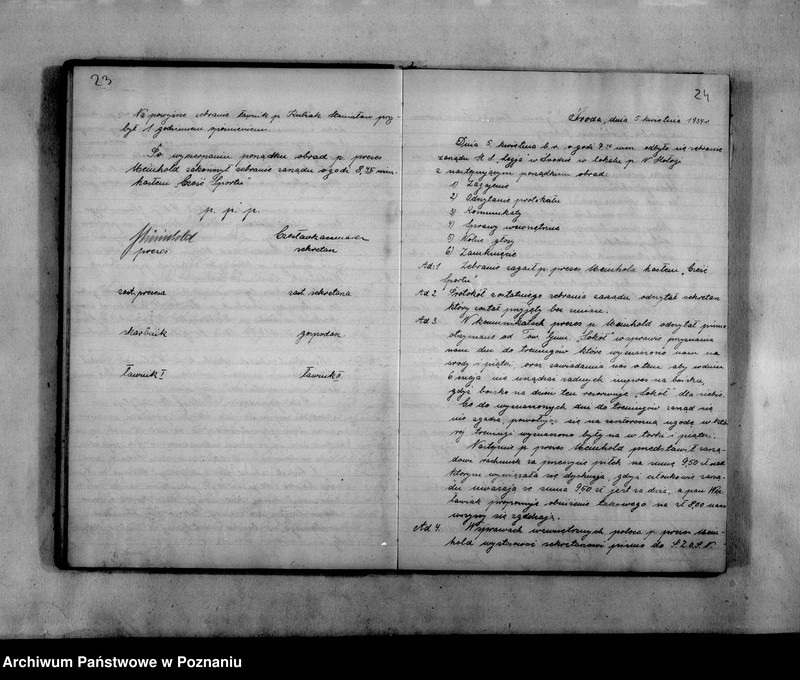 23
Na powyższe zebranie ławnik p. Kubiak Stanisław przy-
był 1 godzinnem spóźnieniem.
Po wyczerpaniu porządku obrad p. prezes
Meinhold zakończył zebranie zarządu o godz 8,45 wiecz.
hasłem Cześć Sportu"
p. p. p.
Meinhold
prezes
sekretarz
zast. prezesa
zast. sekretarza
skarbnik
gospodarz
ławnik I
ławnik II
24
Środa, dnia 5 kwietnia 1934 r.
Dnia 5. kwietnia b.r. o godz 7.30 wiecz. odbyło się zebranie
zarządu K. S. Legja" w Środzie w lokalu p. W.
z następującym porządkiem obrad:
1) Zagajenie
2) Odczytanie protokułu
3) Komunikaty
4) Sprawy wewnętrzne
5) Wolne głosy
6) Zamknięcie
Ad. 1 Zebranie zagaił p. prezes Meinhold hasłem „Cześć
Sportu"
Ad 2. Protokół ostatniego zebrania zarządu odczytał sekretarz
który został przyjęty bez zmian.
Ad 3. W komunikatach prezes p. Meinhold odczytał pismo
otrzymane od Tow. Gimn. „Sokół" w sprawie przyznania
nam dni do treningów które wyznaczono nam na
środy i piątki, oraz zawiadamia nas o tem, aby w dniu
6 maja nie urządzać żadnych imprez na boisku,
gdyż boisko na dzień ten rezerwuje „Sokół" dla siebie.
Co do wyznaczonych dni do treningów zarząd się
nie zgadza, powołując się na zeszłoroczną ugodę w któ-
rej treningi wyznaczone były na wtorki i piątki.
Następnie p. prezes Meinhold przedstawił zarzą-
dowi rachunek za zeszycie piłek na sumę 9,50 zł nad
którym wywiązała się dyskusja, gdyż członkowie zarzą-
du uważają że suma 9,50 zł jest za duża, a pan
proponuje obniżenie takowego na zł 8,00 na co
wszyscy się zgadzają.
Ad 4. W sprawach wewnętrznych poleca p. prezes Mein-
hold wystosować sekretarzowi pismo do